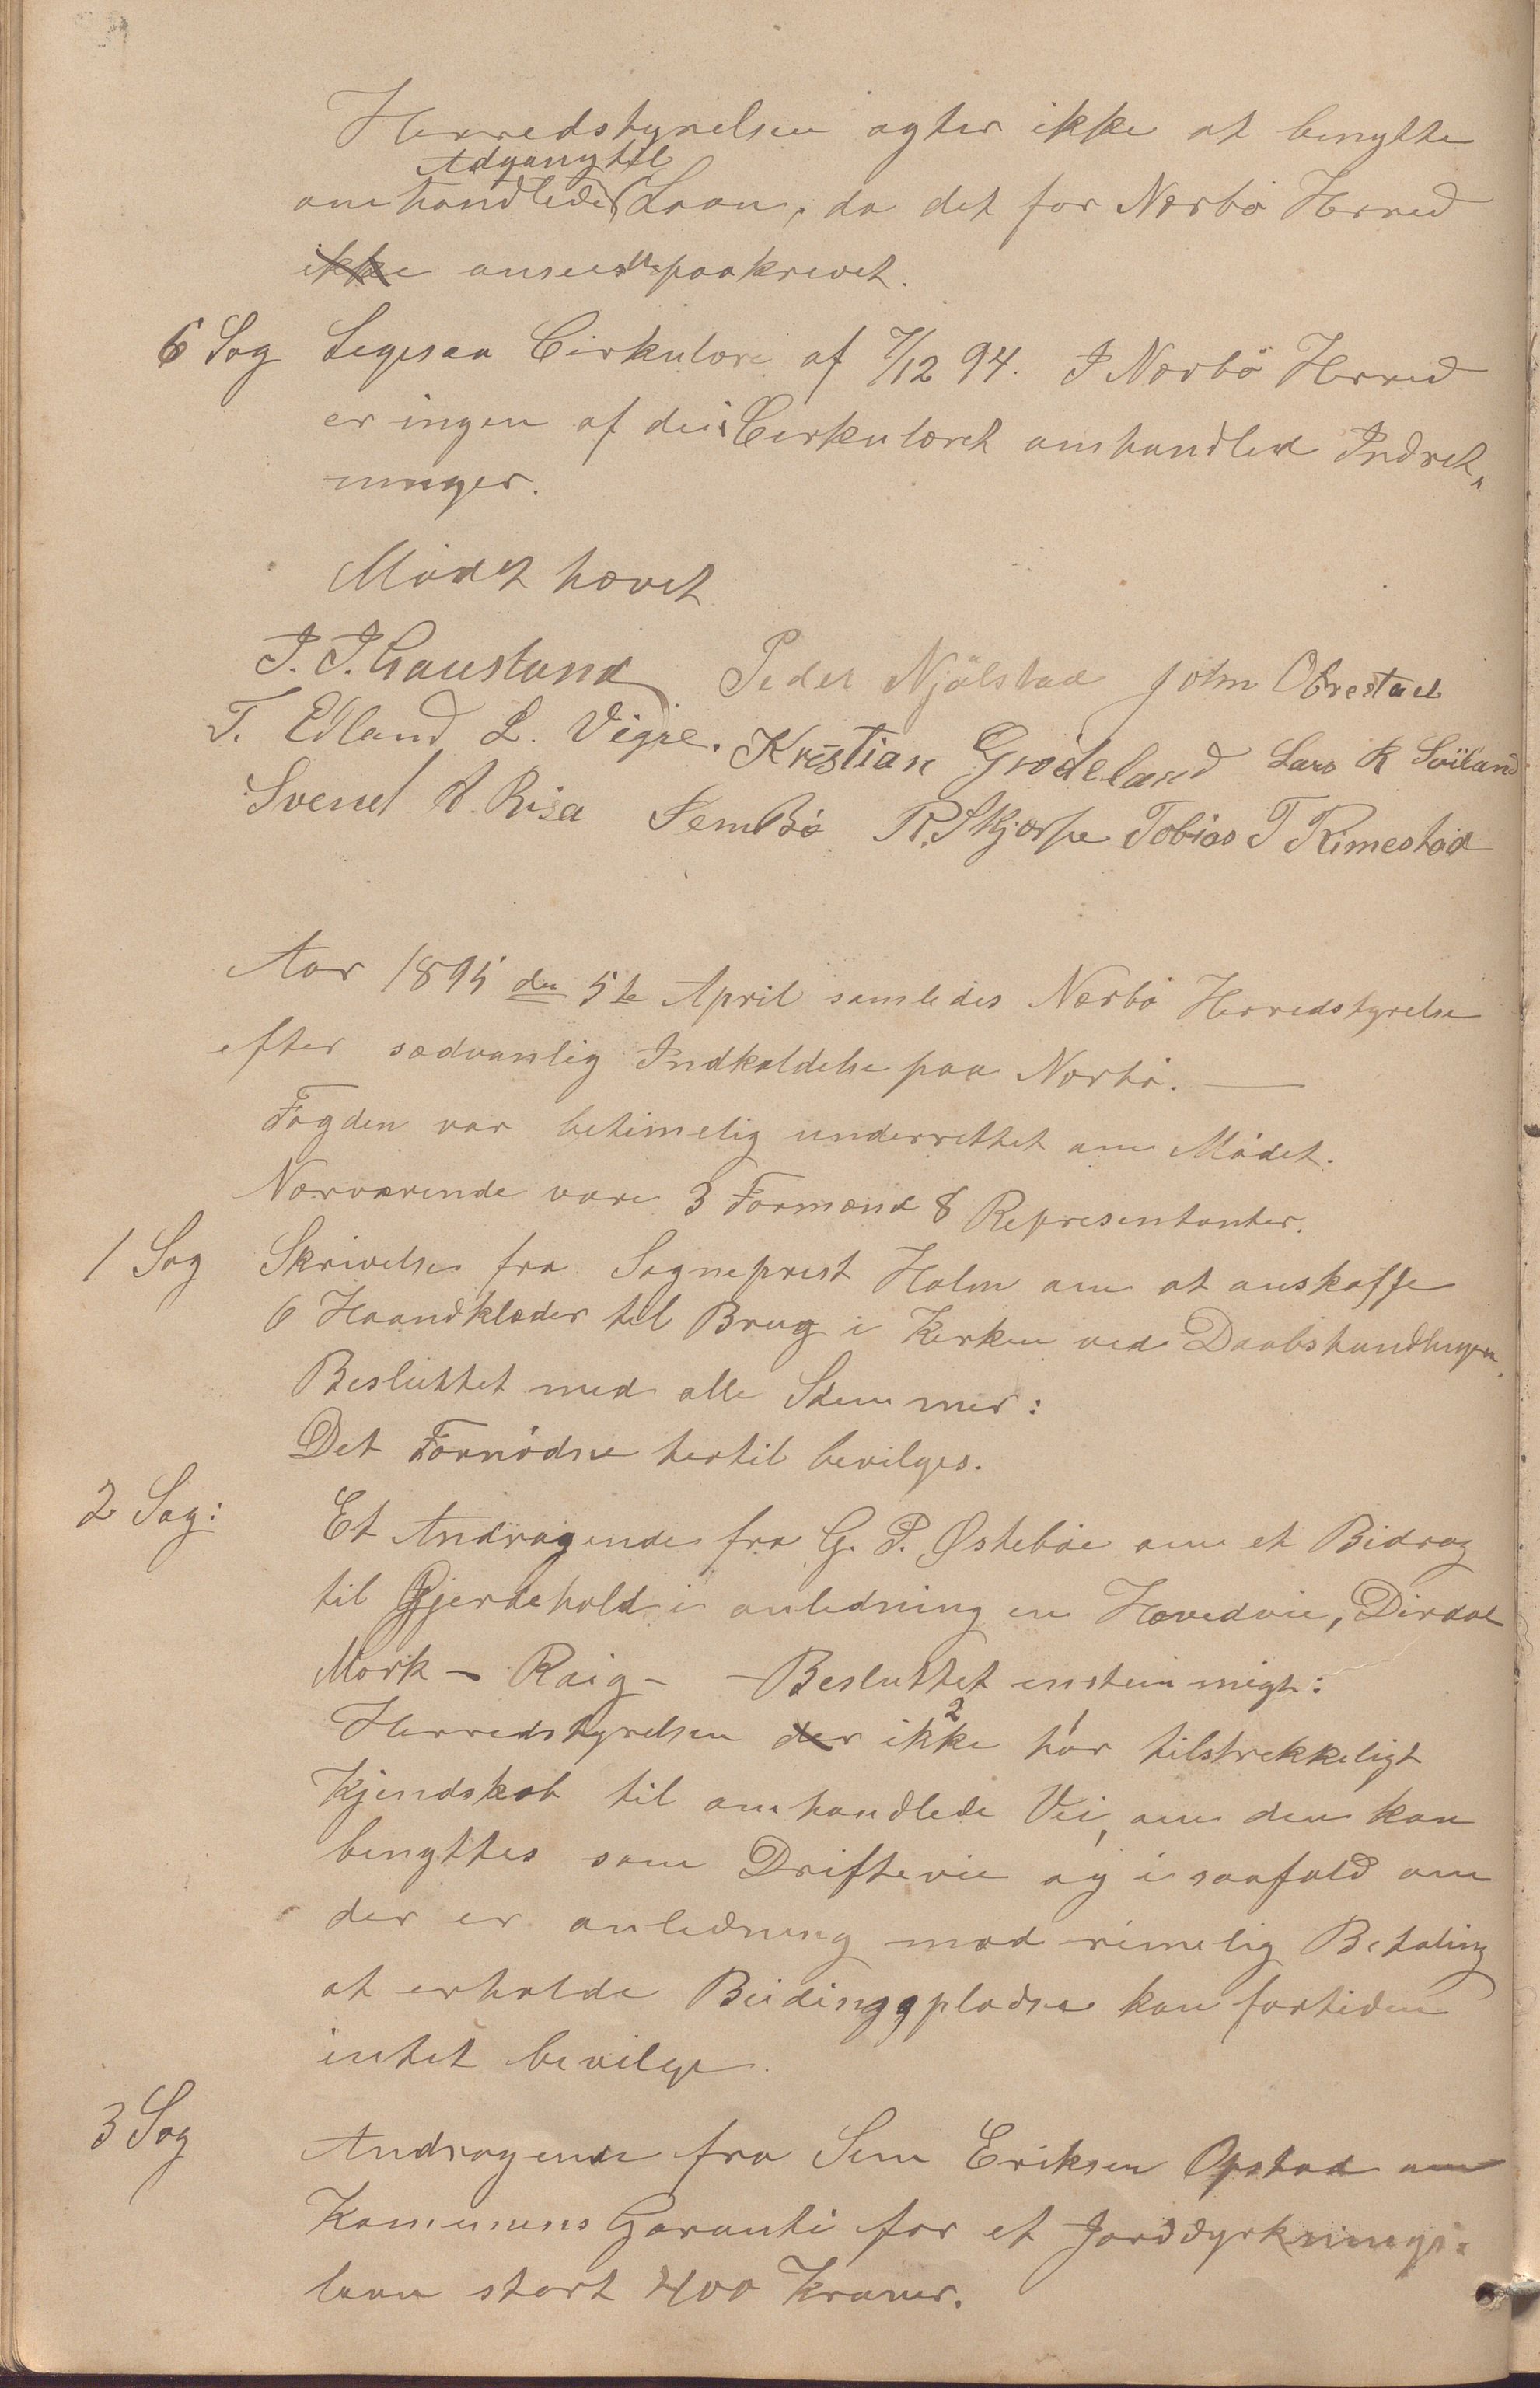 Herredstyrelsen agter ikke at benytte
Adgang til
omhandlede Laan, da det for Nærbö Herred
ikke ansees paakrevet.
6 Sag Ligesaa Cirkulære af 7/12 94. I Nærbö Herred
er ingen af de i Cirkulæret omhandled Indret„
ninger.
Mödet hævet
J. J. Gaustand Peder Njölstad John Obrestad
T. Edland L. Vigre. Kristian Grödeland Lars K Söiland
Svend A. Risa Sem Bö R. Skjærpe Tobias T Rimestad
Aar 1895 den 5te April samledes Nærbö Herredstyrelse
efter sædvanlig Indkaldelse paa Nærbö. —
Fogden var betimelig underrettet om Mödet.
Nærværende vare 3 Formænd 8 Representanter.
1 Sag Skrivelse fra Sogneprest Holm om at anskaffe
6 Haandklæder til Brug i Kirken ved Daabshandlingen.
Besluttet med alle Stemmer:
Det Fornödne hertil bevilges.
2 Sag: Et Andragende fra G. P. Østeböe om et Bidrag
til Gjerdehold i anledning en Hovedvie, Dirdal
Mork – Raig – – Besluttet enstemmigt:
2 1
Herredstyrelsen der ikke har tilstrekkeligt
Kjendskab til omhandlede Vei, om den kan
benyttes som Driftevie og i saafald om
der er anledning mod rimelig Betaling
at erholde Beidingspladse kan fortiden
intet bevilge.
3 Sag Andragende fra Sem Eriksen Opstad om
Kommunens Garanti for et Jorddyrknings-
laan stort 400 Kroner.